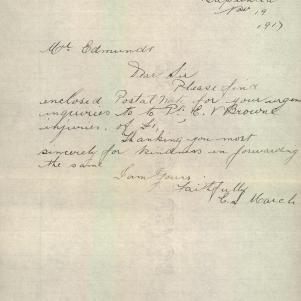 Kapunda
Nov 19
1917
Mr Edmunds
Dear Sir
Please find
enclosed Postal Note for your urgent
inquiries to C Pl. E. V Browne
injuries. of
Thanking you most
sincerely for kindness in forwarding
the same
I am Yours
Faithfully
C. S March